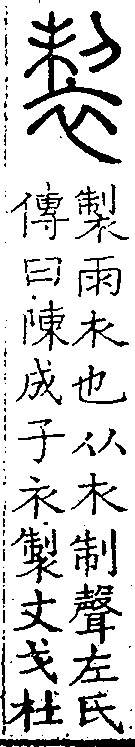 製
製雨衣也从衣制聲左氏
傳曰陳成子衣製丈戈杜